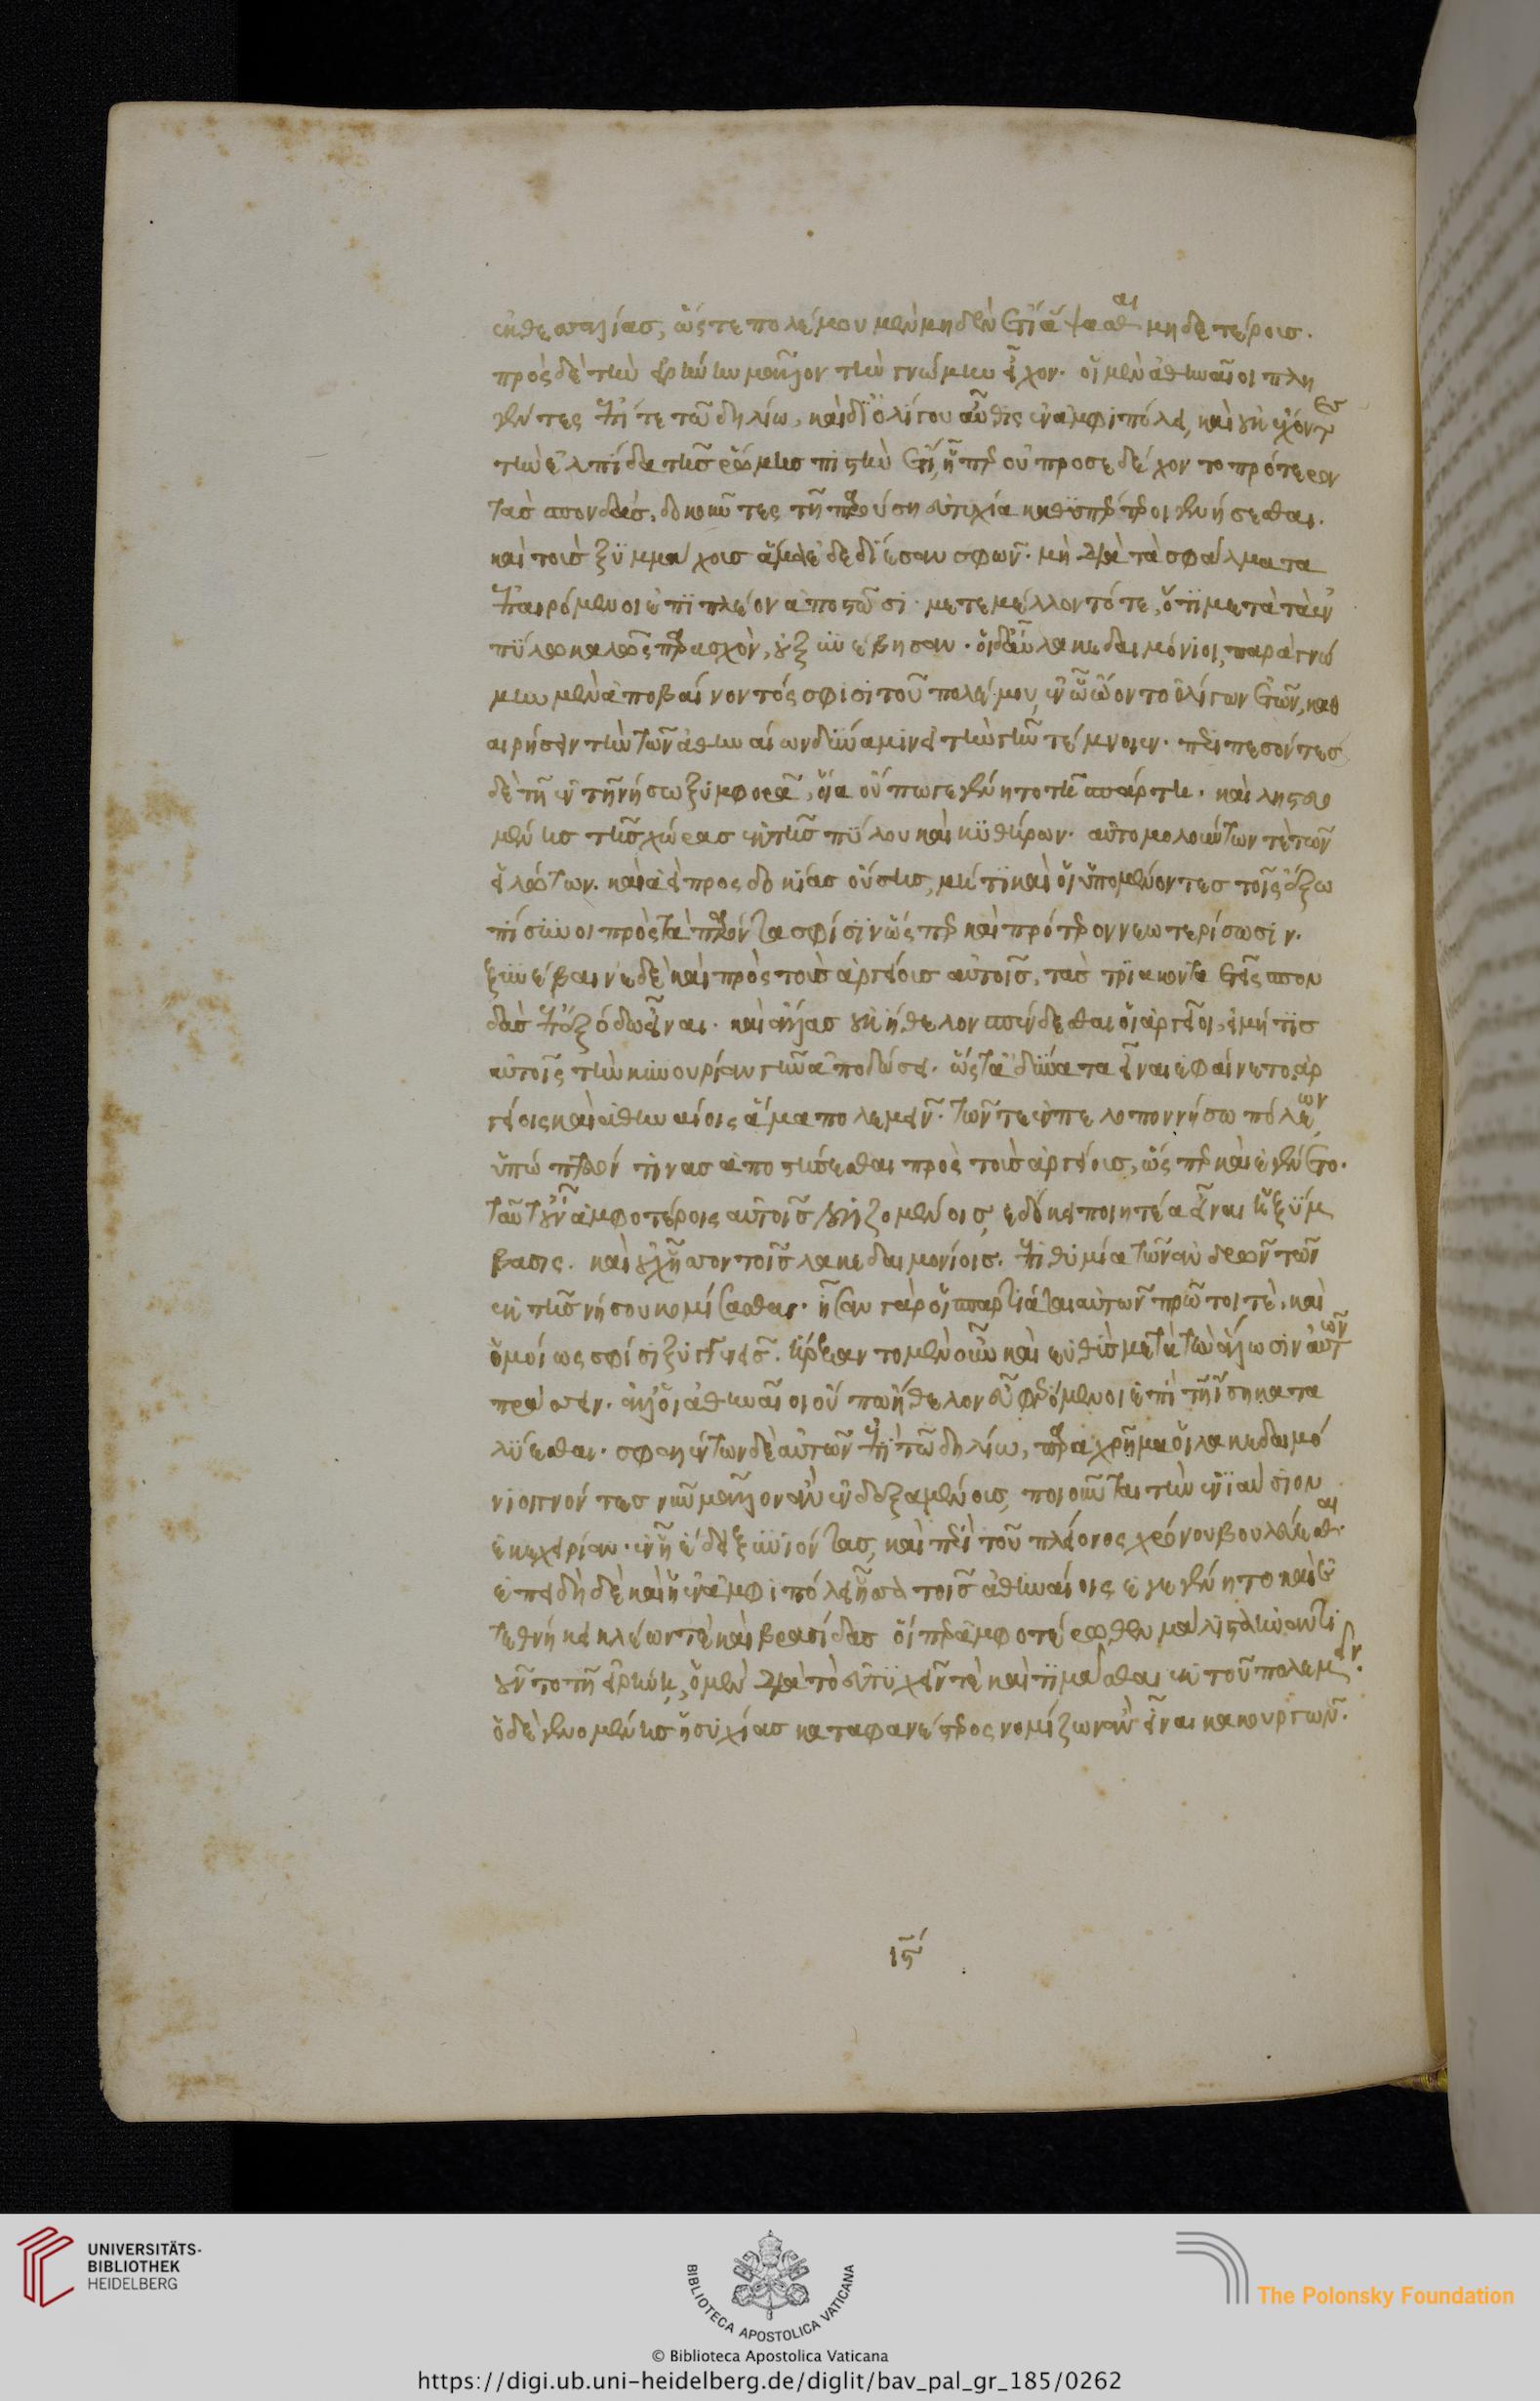 ἐκ θεσσαλίας, ὥστε πολέμου μὲν μηδὲν ἔτι ἅψασθαι μηδετέροις.
πρὸς δὲ τὴν εἰρήνην μᾶλλον τὴν γνώμην εἶχον. οἱ μὲν ἀθηναῖοι πλη
γέντες ἐπί τε τῶ δηλίω, καὶ δι' ὀλίγου αὖθις ἐν ἀμφιπόλει, καὶ οὐκ ἔχοντες
τὴν ἐλπίδα τῆς ῥώμης πιστὴν ἔτι, ἧπερ οὐ προσεδέχοντο πρότερον
τὰς σπονδάς, δοκοῦντες τῆ παρούση εὐτυχία καθυπέρτεροι γενήσεσθαι.
καὶ τοὺς ξυμμάχους ἅμα ἐδεδίεσαν σφῶν. μὴ διὰ τὰ σφάλματα
ἐπαιρόμενοι ἐπὶ πλέον ἀποστῶσι. μετεμέλλοντό τε, ὅτι μετὰ τὰ ἐν
πύλω καλῶς παρασχὸν, οὐ ξυνέβησαν. οἱ δ' αὖ λακεδαιμόνιοι, παρὰ γνώ
μην μὲν ἀποβαίνοντός σφισι τοῦ πολέμου, ἐν ὧ ὤοντο ὀλίγων ἐτῶν, καθ
αιρήσειν τὴν τῶν ἀθηναίων δύναμιν εἰ τὴν γῆν τέμνοιεν. περιπεσόντες
δὲ τῆ ἐν τῆ νήσω ξυμφορᾶ, οἵα οὔπω γεγένητο τῆ σπάρτη. καὶ ληστευο
μένης τῆς χώρας ἐκ τῆς πύλου καὶ κυθήρων. αὐτομολούντων τὲ τῶν
εἱλώτων. καὶ ἀεὶ προσδοκίας οὔσης, μή τι καὶ οἱ ὑπομένοντες τοῖς ἔξω
πίσυνοι πρὸς τὰ παρόντα σφίσιν ὥσπερ καὶ πρότερον νεωτερίσωσιν.
ξυνέβαινε δὲ καὶ πρὸς τοὺς ἀργείους αὐτοῖς, τὰς τριακοντα ἔτεις σπον
δὰς ἐπ' ἐξόδω εἶναι. καὶ ἄλλας οὐκ ἤθελον σπένδεσθαι οἱ ἀργεῖοι, εἰ μή τις
αὐτοῖς τὴν κυνουρίαν γῆν ἀποδώσει. ὥστ' ἀδύνατα εἶναι ἐφαίνετο ἀρ
γείοις καὶ ἀθηναίοις ἅμα πολεμεῖν. τῶν τε ἐν πελοποννήσω πόλεων,
ὑπώπτευόν τινας ἀποστήσεσθαι πρὸς τοὺς ἀργείους, ὥσπερ καὶ ἐγένετο.
ταῦτ' οὖν ἀμφοτέροις αὐτοῖς λογιζομένοις, ἐδόκει ποιητέα εἶναι ἡ ξύμ
βασις. καὶ οὐχ ἧσσον τοῖς λακεδαιμονίοις. ἐπιθυμία τῶν ἀνδρῶν τῶν
ἐκ τῆς νήσου κομίσασθαι. ἦσαν γὰρ οἱ σπαρτιάται αὐτῶν πρῶτοι τὲ, καὶ
ὁμοίως σφίσι ξυγγενεῖς. ἤρξαντο μὲν οὖν καὶ εὐθὺς μετὰ τὴν ἅλωσιν αὐτῶν
πράσσειν. ἀλλ' οἱ ἀθηναῖοι οὔπω ἤθελον εὖ φερόμενοι ἐπὶ τῆ ἴση κατα
λύεσθαι. σφαλέντων δὲ αὐτῶν ἐπὶ τῶ δηλίω, παραχρῆμα οἱ λακεδαιμό
νιοι γνόντες νῦν μᾶλλον ἂν ἐνδεξαμένους, ποιοῦνται τὴν ἐνιαύσιον
ἐκεχειρίαν. ἐν ἧ ἔδει ξυνιόντας, καὶ περὶ τοῦ πλείονος χρόνου βουλεύεσθαι.
ἐπειδὴ δὲ καὶ ἡ ἐν ἀμφιπόλει ἧσσα τοῖς ἀθηναίοις ἐγεγένητο καὶ ἐ
τεθνήκει κλέων τὲ καὶ βρασίδας οἵπερ ἀμφοτέρωθεν μάλιστα ἠναντι
οῦντο τῆ εἰρήνη, ὁ μὲν διὰ τὸ εὐτυχεῖν τὲ καὶ τιμᾶσθαι ἐκ τοῦ πολεμεῖν.
ὁ δὲ γενομένης ἡσυχίας καταφανέστερος νομίζων ἂν εἶναι κακουργῶν.
ις΄
UNIVERSITÄTS-
BIBLIOTHEK
HEIDELBERG
BIBLIOTECA APOSTOLICA VATICANA
The Polonsky Foundation
© Biblioteca Apostolica Vaticana
https://digi.ub.uni-heidelberg.de/diglit/bav_pal_gr_185/0262